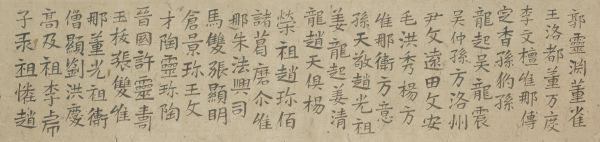 郭靈淵董雀
王洛都董万慶
李文檀淮那傳
定香孫豹孫
龍起吳龍震
吳仲孫方洛州
尹父遠田父安
毛洪秀楊方
隹那衞方意
孫天敬趙光祖
姜龍起姜清
龍趙天俱楊
榮祖趙珎佰
諸葛磨尒隹
那朱法興司
馬雙張顯明
倉景珎王父
才陶靈珎陶
晉國許靈壽
王枚張雙隹
那董光祖衞
僧顯劉洪慶
高及祖李虎
子乘祖惓趙